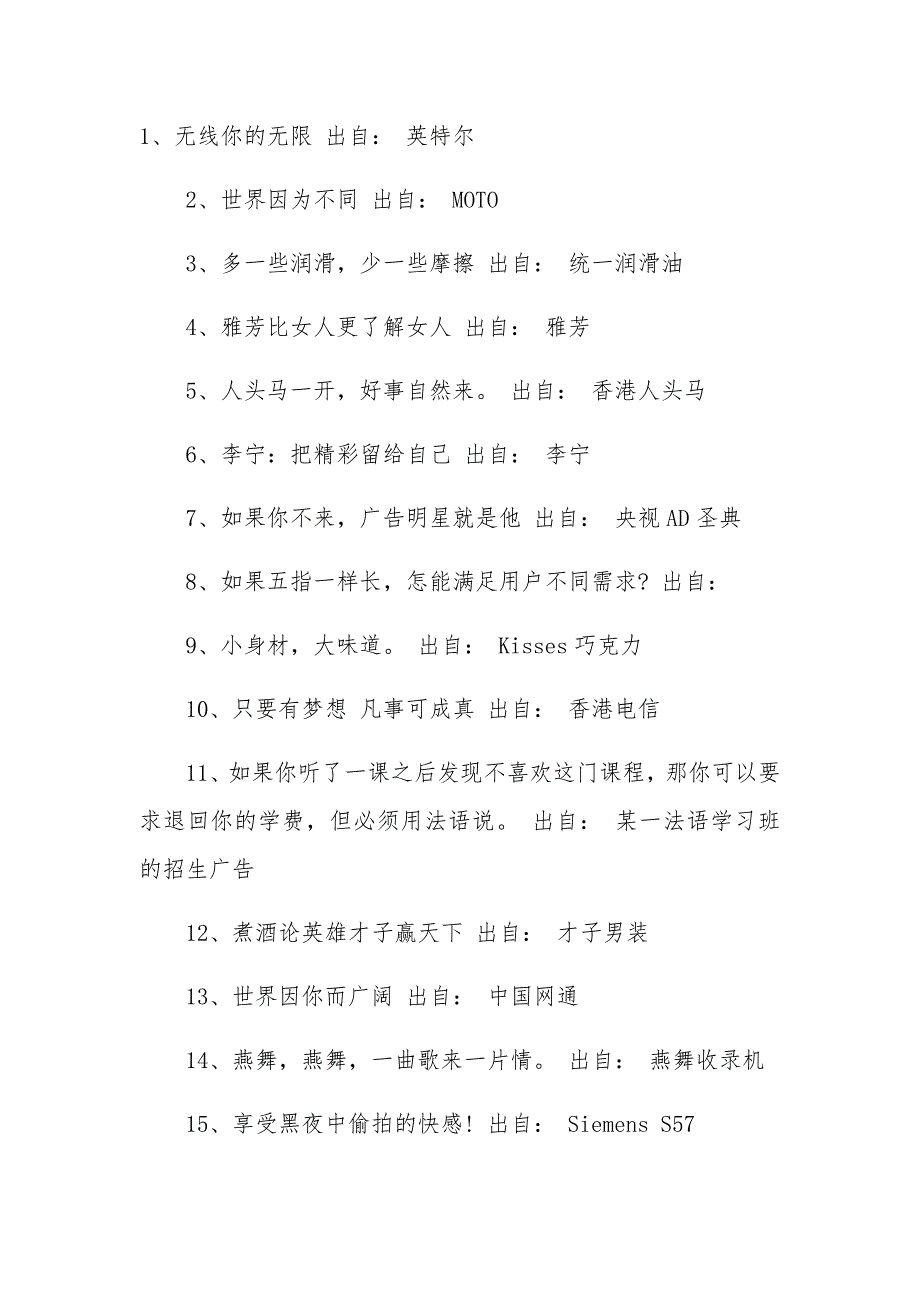 1、无线你的无限 出自： 英特尔
2、世界因为不同 出自： MOTO
3、多一些润滑，少一些摩擦 出自： 统一润滑油
4、雅芳比女人更了解女人 出自： 雅芳
5、人头马一开，好事自然来。 出自： 香港人头马
6、李宁：把精彩留给自己 出自： 李宁
7、如果你不来，广告明星就是他 出自： 央视AD圣典
8、如果五指一样长，怎能满足用户不同需求? 出自：
9、小身材，大味道。 出自： Kisses巧克力
10、只要有梦想 凡事可成真 出自： 香港电信
11、如果你听了一课之后发现不喜欢这门课程，那你可以要
求退回你的学费，但必须用法语说。 出自： 某一法语学习班
的招生广告
12、煮酒论英雄才子赢天下 出自： 才子男装
13、世界因你而广阔 出自： 中国网通
14、燕舞，燕舞，一曲歌来一片情。 出自： 燕舞收录机
15、享受黑夜中偷拍的快感! 出自： Siemens S57